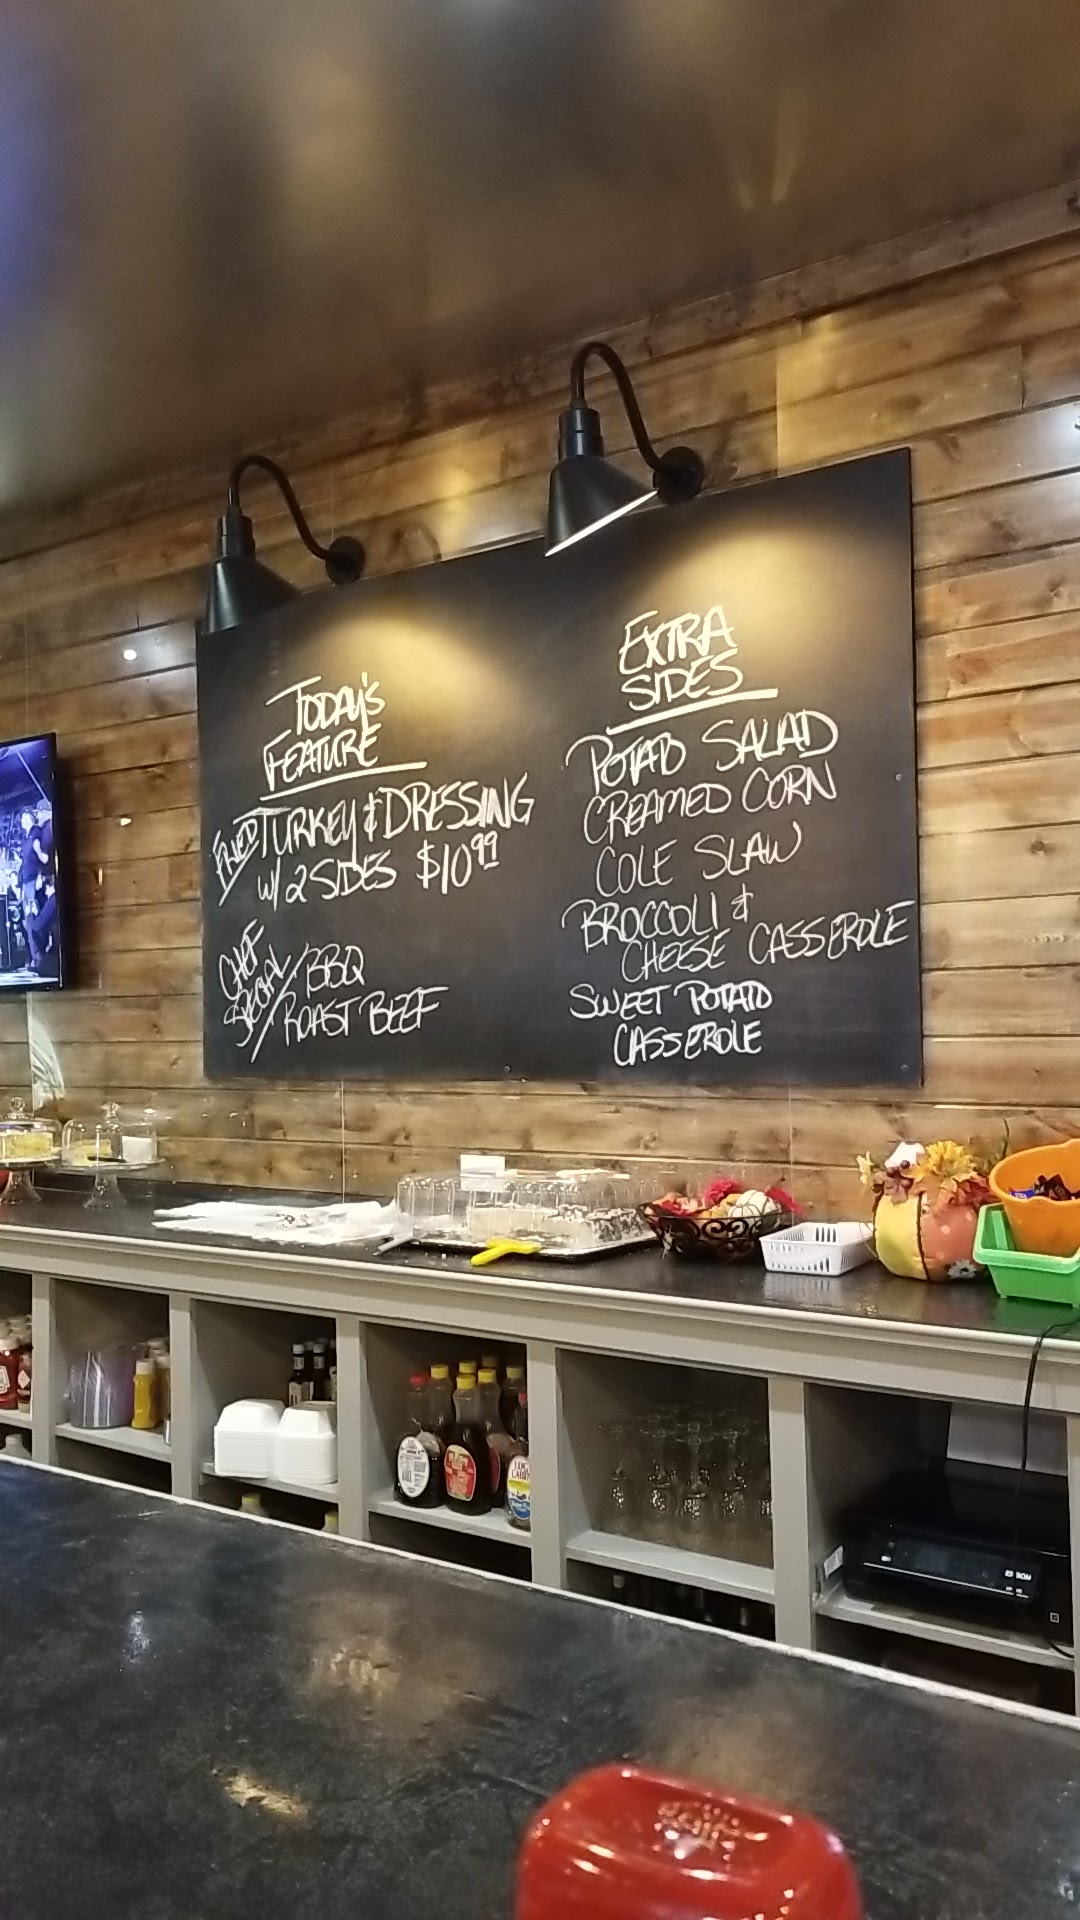 TODAY'S
FEATURE
FRIED TURKEY & DRESSING
W/ 2 SIDES $10.99
CHEF
SPECIAL / BBQ
ROAST BEEF
EXTRA
SIDES
POTATO SALAD
CREAMED CORN
COLE SLAW
BROCCOLI &
CHEESE CASSEROLE
SWEET POTATO
CASSEROLE
LOG
CABIN